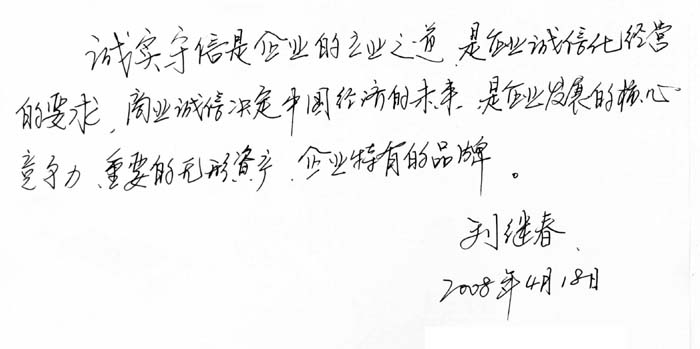 诚实守信是企业的立业之道,是企业诚信化经营
的要求,商业诚信决定中国经济的未来,是企业发展的核心
竞争力、重要的无形资产、企业特有的品牌。
刘继春
2008年4月18日